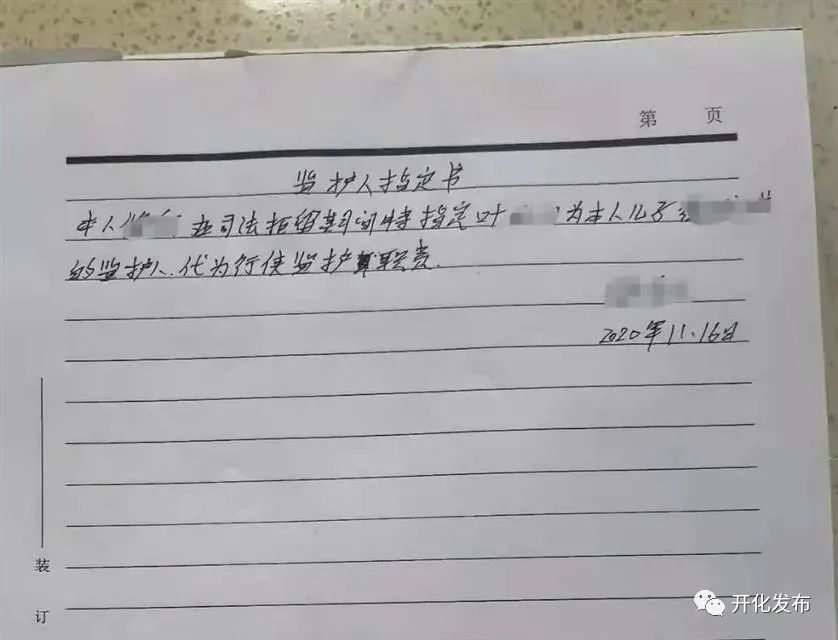 第 页
监护人指定书
本人 在司法拒留期间特指定叶 为本人儿子
的监护人.代为行使监护 职责.
2020年11.16日
装
订
开化发布